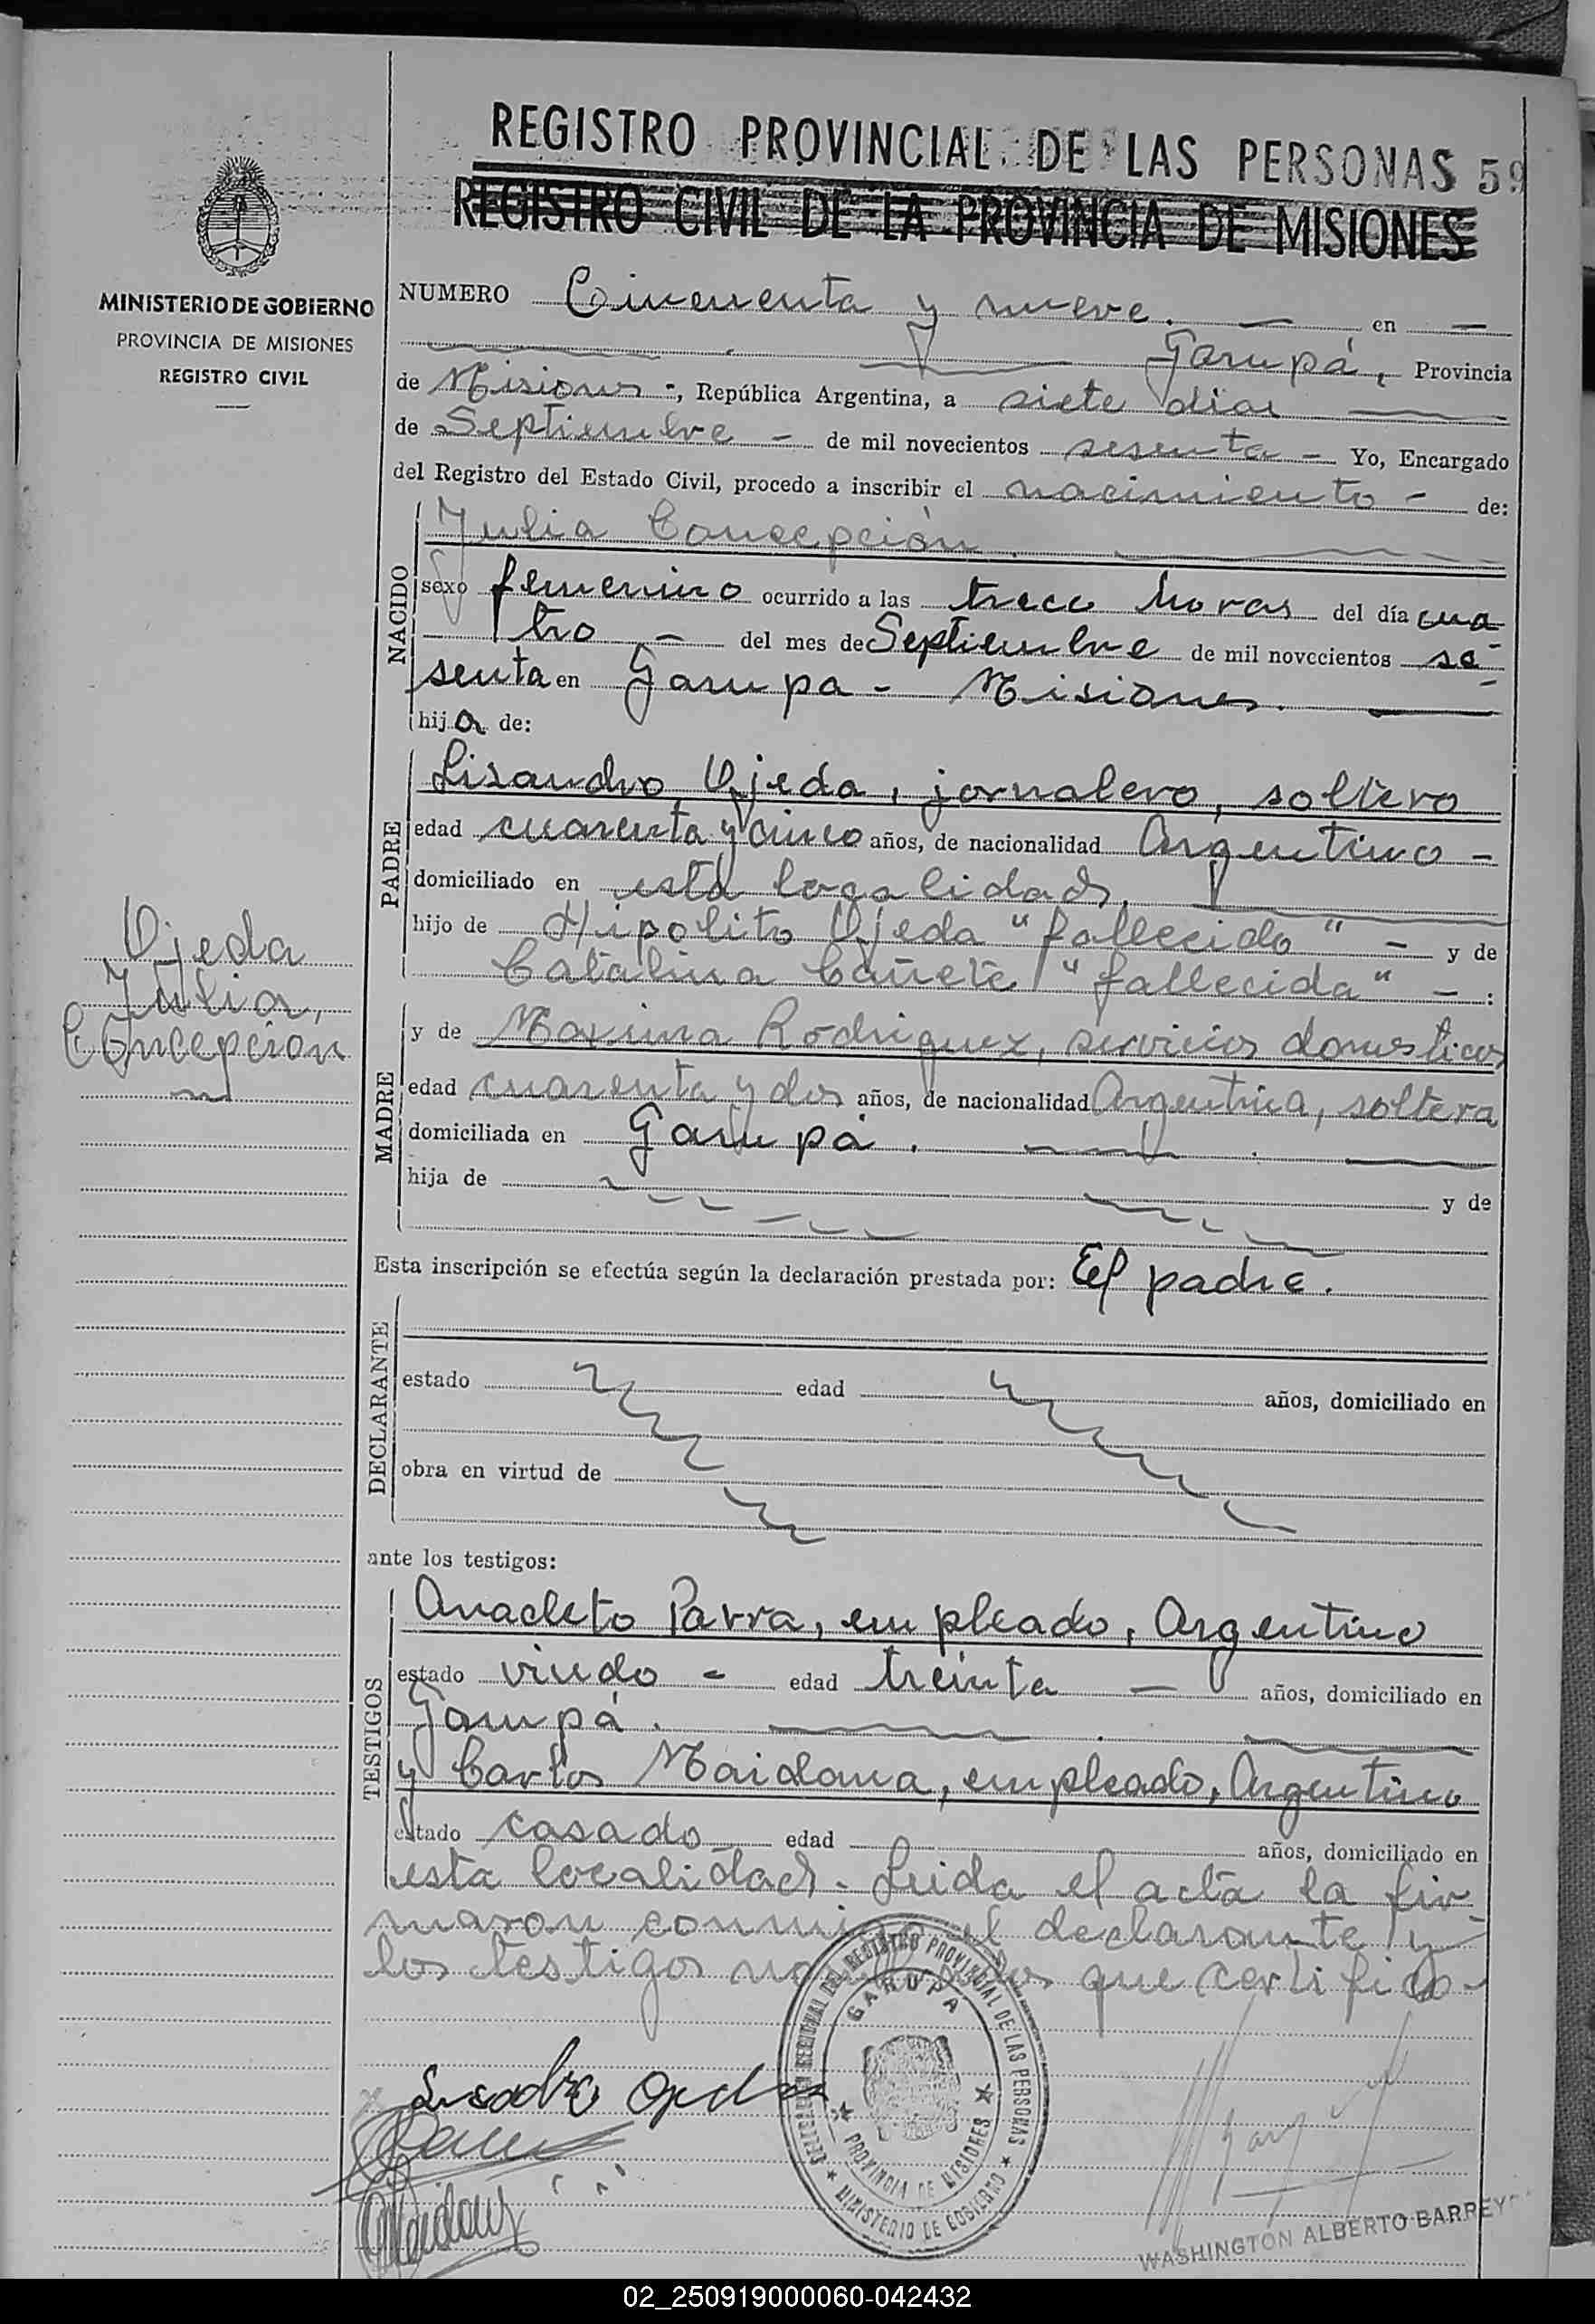 REGISTRO PROVINCIAL DE LAS PERSONAS 59
REGISTRO CIVIL DE LA PROVINCIA DE MISIONES
MINISTERIO DE GOBIERNO
PROVINCIA DE MISIONES
REGISTRO CIVIL
NUMERO Cincuenta y nueve. — en —
Garupá, Provincia
de Misiones -, República Argentina, a siete días
de Septiembre - de mil novecientos sesenta - Yo, Encargado
del Registro del Estado Civil, procedo a inscribir el nacimiento - de:
NACIDO
Julia Concepción.
sexo femenino ocurrido a las trece horas del día cua-
tro - del mes de Septiembre de mil novecientos se-
senta en Garupa - Misiones.
hija de:
PADRE
Lisandro Ojeda, jornalero, soltero
edad cuarenta y cinco años, de nacionalidad Argentino -
domiciliado en esta localidad.
hijo de Hipolito Ojeda "fallecido" - y de
Catalina Cañete "fallecida" - :
Ojeda
Julia,
Concepción
MADRE
y de Maxima Rodriguez, servicios domesticos
edad cuarenta y dos años, de nacionalidad Argentina, soltera
domiciliada en Garupá.
hija de y de
Esta inscripción se efectúa según la declaración prestada por: El padre.
DECLARANTE
estado edad años, domiciliado en
obra en virtud de
ante los testigos:
TESTIGOS
Anacleto Parra, empleado, Argentino
estado viudo - edad treinta — años, domiciliado en
Garupá.
y Carlos Maidana, empleado, Argentino
estado casado edad años, domiciliado en
esta localidad. Leida el acta la fir-
maron conmigo el declarante y
los testigos que certifico-
Lisandro Ojeda
Maidana
DELEGACION REGIONAL DEL REGISTRO PROVINCIAL DE LAS PERSONAS
GARUPA
PROVINCIA DE MISIONES
MINISTERIO DE GOBIERNO
WASHINGTON ALBERTO BARREY
02_250919000060-042432